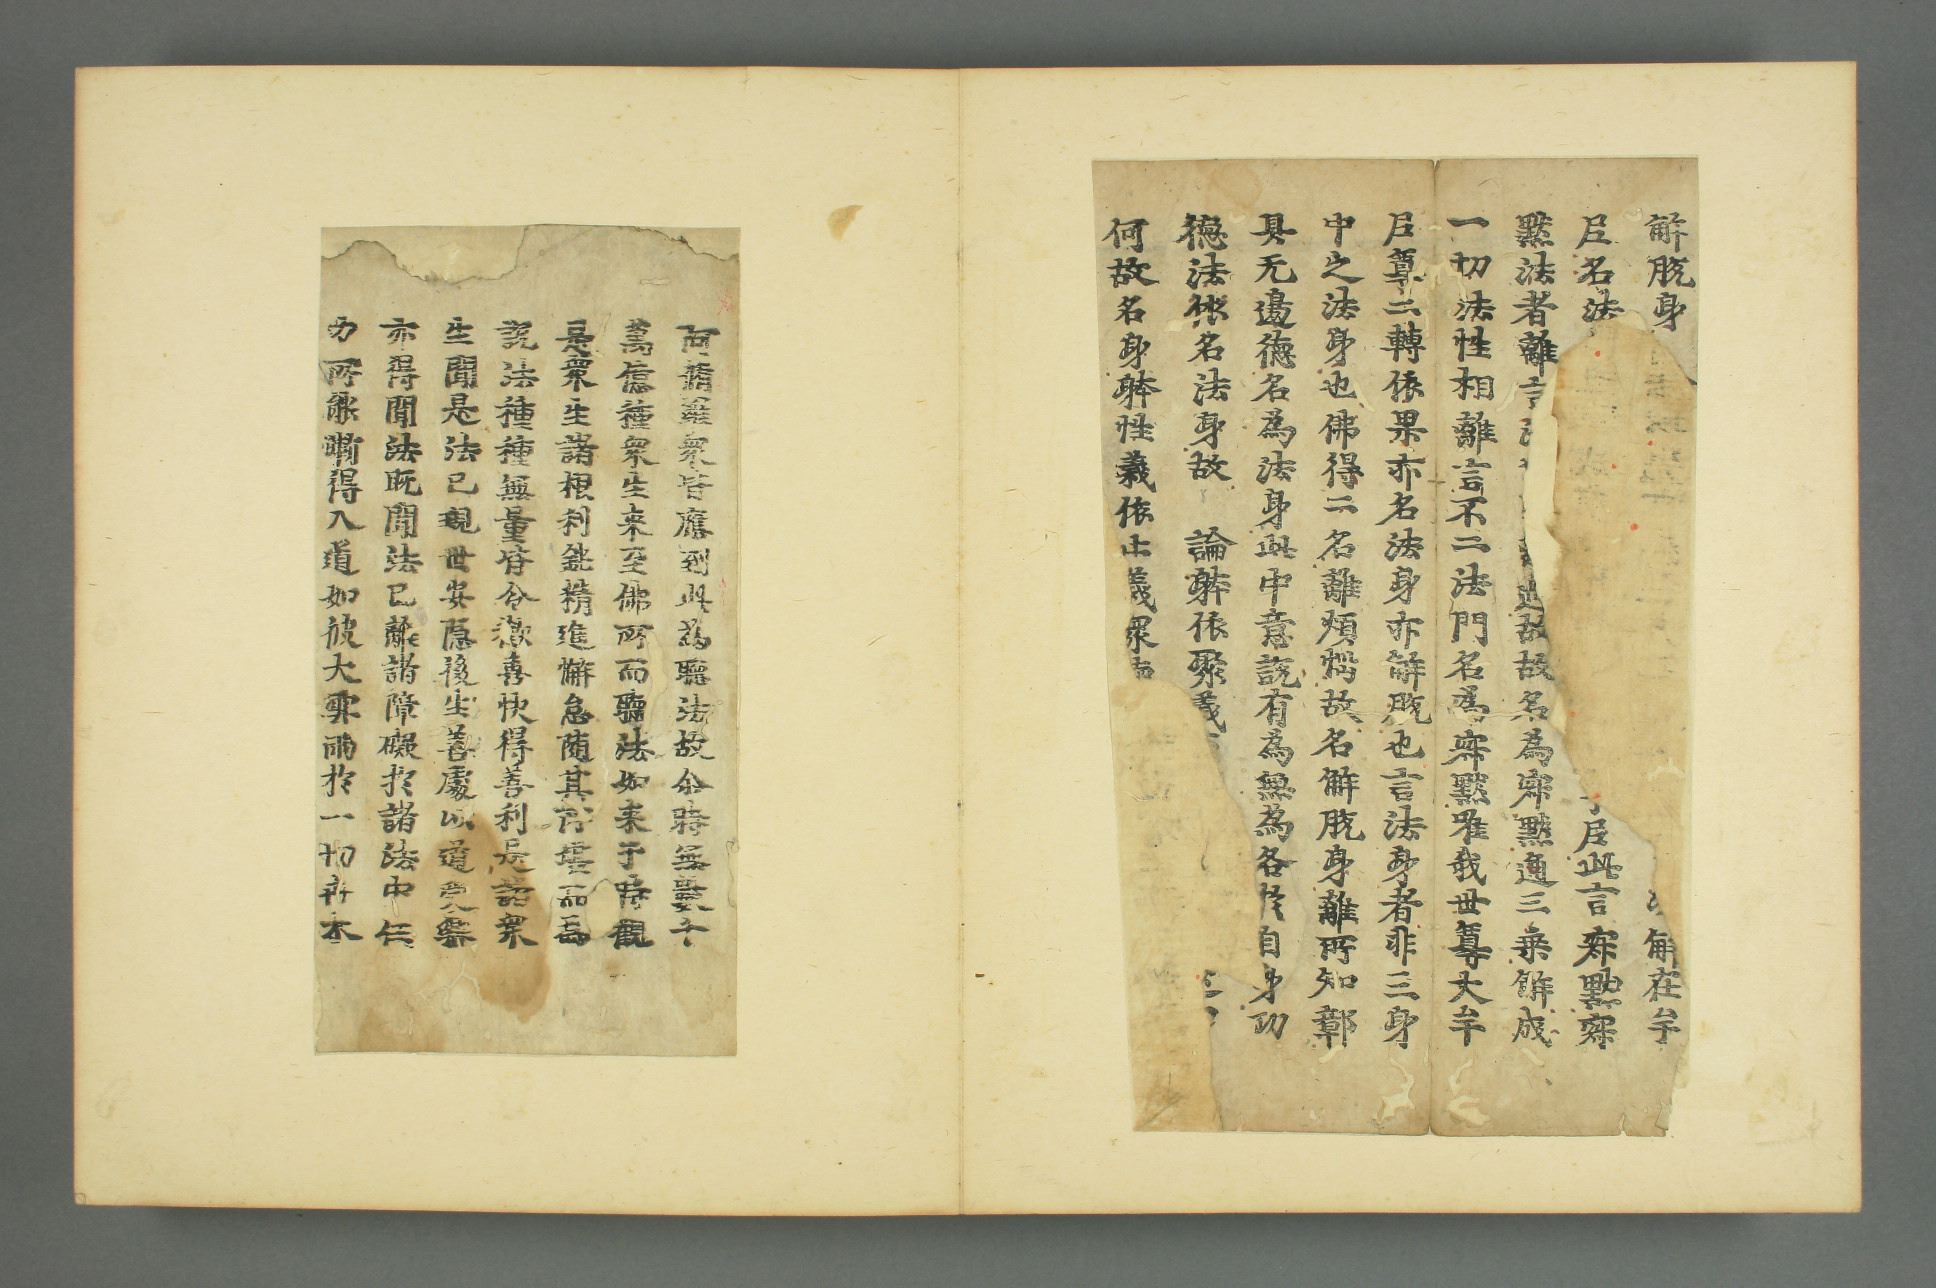 解脱身
解在牟
尼名法
尼此言寂默寂
默法者離言
故故名為寂默通三乗解成
一切法性相離言不二法門名為寂默唯我世尊大牟
尼尊二轉依果亦名法身亦解脱也言法身者非三身
中之法身也佛得二名離煩惱故名解脱身離所知鄣
具无邊德名為法身此中意説有為無為各修自身功
德法依名法身故 論躰依聚義
何故名身躰性義依止義衆
阿脩羅衆皆應到此為聽法故尒時無數千
萬億種衆生來至佛所而聽法如来于時觀
是衆生諸根利鈍精進懈怠随其所堪而為
説法種種無量皆令歡喜快得善利是諸衆
生聞是法已現世安隱後生善處以道受樂
亦得聞法既聞法已離諸障礙於諸法中任
力所能漸得入道如彼大雲雨於一切卉木